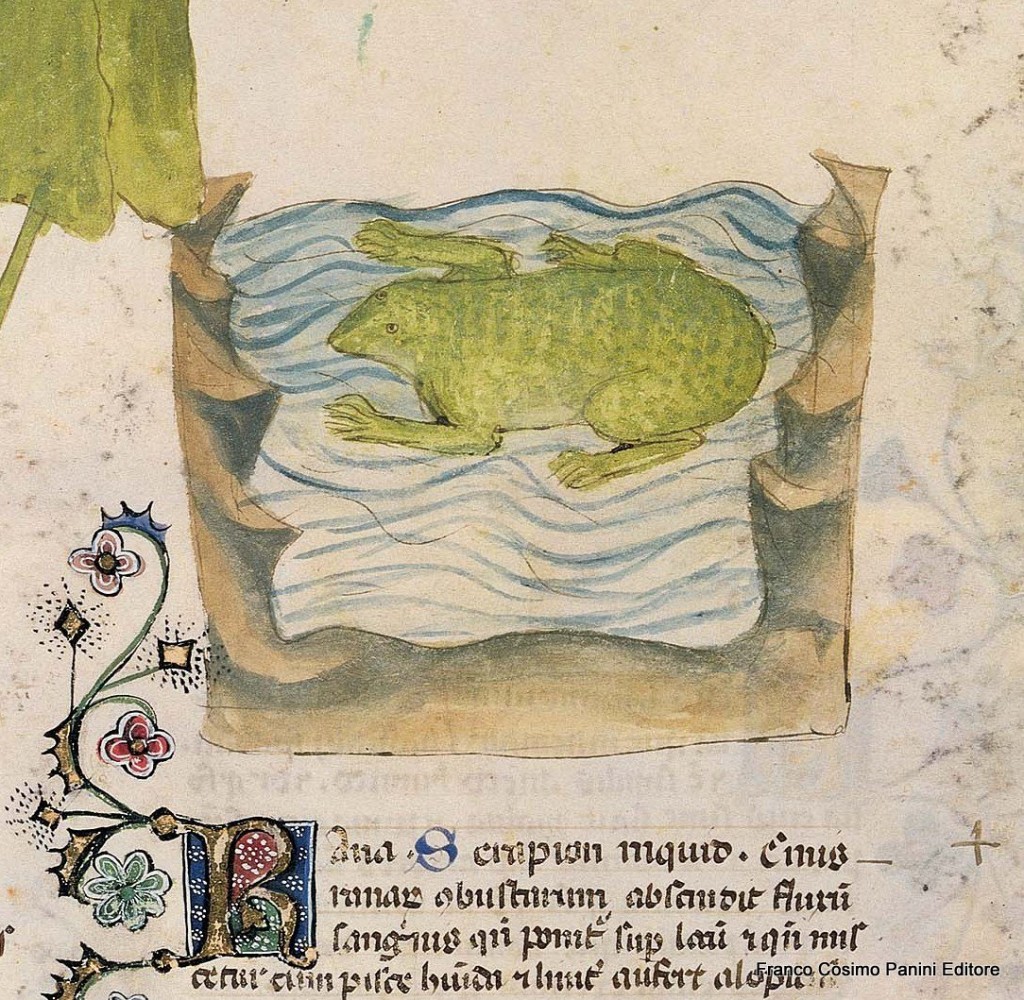 Rana . Serapion inquid . Cinis
ranaꝝ obustarum abscindit fluxū
sang̃uis qñ ponit᷑ sup̱ locū ⁊ qñ mis
cetur cum pisce huĩda ⁊ linit᷑ aufert alopici
Franco Cosimo Panini Editore